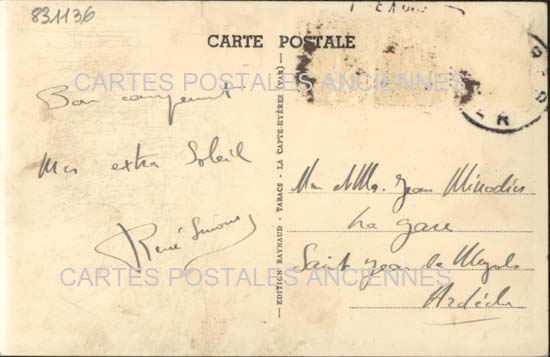 831136
CARTE POSTALE
CARTES POSTALES ANCIENNES
Bon campement
Mer extra Soleil
René Simons
EDITION RAYNAUD - TABACS - LA CAPTE-HYÈRES (VAR)
Mr et Me Jean
La gare
Saint Jean de
Ardèche
CARTES POSTALES ANCIENNES